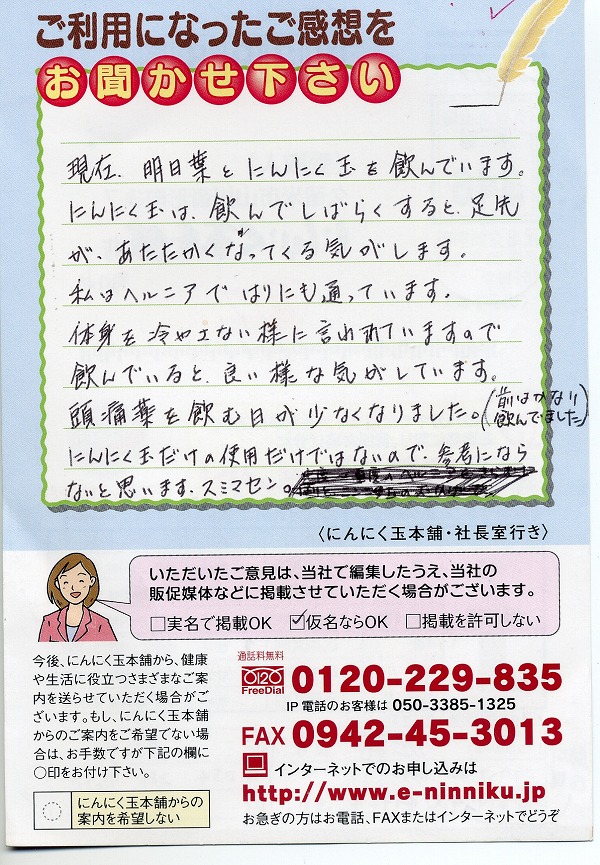 ご利用になったご感想を
お聞かせ下さい
現在、明日葉とにんにく玉を飲んでいます。
にんにく玉は、飲んでしばらくすると、足先
が、あたたかくなってくる気がします。
私はヘルニアではりにも通っています。
体身を冷やさない様に言われていますので
飲んでいると、良い様な気がしています。
頭痛薬を飲む日が少なくなりました。(前はかなり
飲んでました)
にんにく玉だけの使用だけではないので、参考になら
ないと思います、スミマセン。
〈にんにく玉本舗・社長室行き〉
いただいたご意見は、当社で編集したうえ、当社の
販促媒体などに掲載させていただく場合がございます。
□実名で掲載OK ☑仮名ならOK □掲載を許可しない
今後、にんにく玉本舗から、健康
や生活に役立つさまざまなご案
内を送らせていただく場合がご
ざいます。もし、にんにく玉本舗
からのご案内をご希望でない場
合は、お手数ですが下記の欄に
○印をお付け下さい。
にんにく玉本舗からの
案内を希望しない
通話料無料
FreeDial 0120-229-835
IP電話のお客様は 050-3385-1325
FAX 0942-45-3013
インターネットでのお申し込みは
http://www.e-ninniku.jp
お急ぎの方はお電話、FAXまたはインターネットでどうぞ